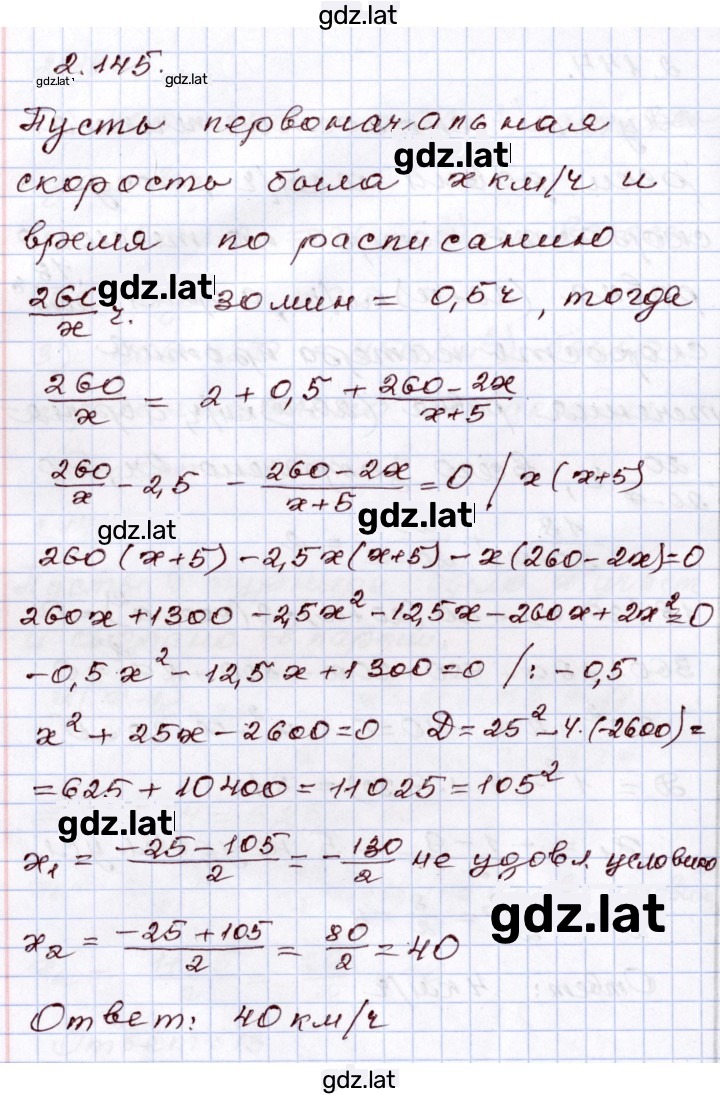 gdz.lat
2.145.
gdz.lat gdz.lat
Пусть первоначальная
gdz.lat
скорость была x км/ч и
время по расписанию
260/x ч. gdz.lat 30 мин = 0,5ч, тогда
260/x = 2 + 0,5 + (260-2x)/(x+5)
260/x - 2,5 - (260-2x)/(x+5) = 0 / x(x+5)
gdz.lat gdz.lat
260(x+5)-2,5x(x+5)-x(260-2x)=0
260x+1300-2,5x²-12,5x-260x+2x²=0
-0,5x²-12,5x+1300=0 /:-0,5
x²+25x-2600=0 D=25²-4·(-2600)=
=625+10400=11025=105²
gdz.lat
x₁ = (-25-105)/2 = -130/2 не удовл. условию
gdz.lat
x₂ = (-25+105)/2 = 80/2 = 40
Ответ: 40 км/ч
gdz.lat